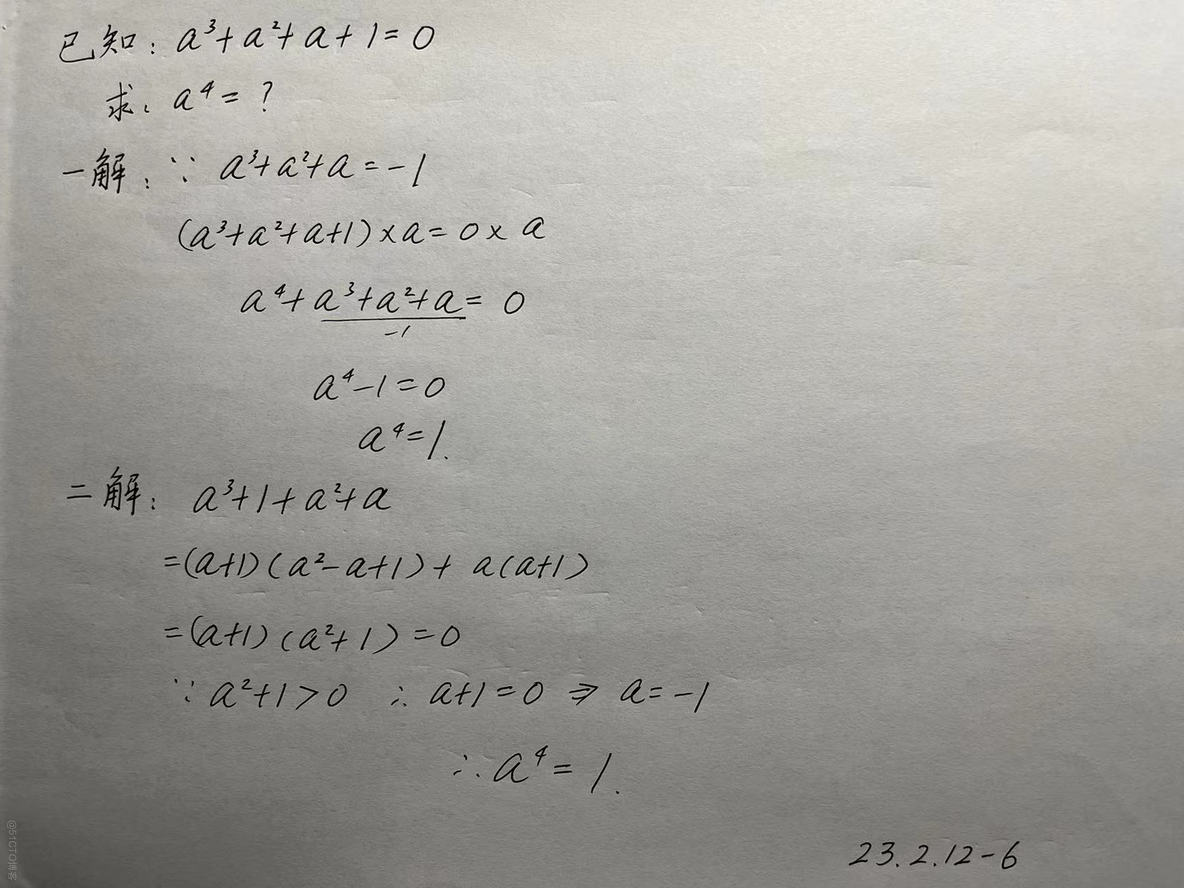 已知: a³+a²+a+1=0
求: a⁴=?
一解: ∵ a³+a²+a=-1
(a³+a²+a+1)×a=0×a
a⁴+a³+a²+a=0
-1
a⁴-1=0
a⁴=1.
二解: a³+1+a²+a
=(a+1)(a²-a+1)+a(a+1)
=(a+1)(a²+1)=0
∵ a²+1>0 ∴ a+1=0 ⇒ a=-1
∴ a⁴=1.
23.2.12-6
@51CTO博客